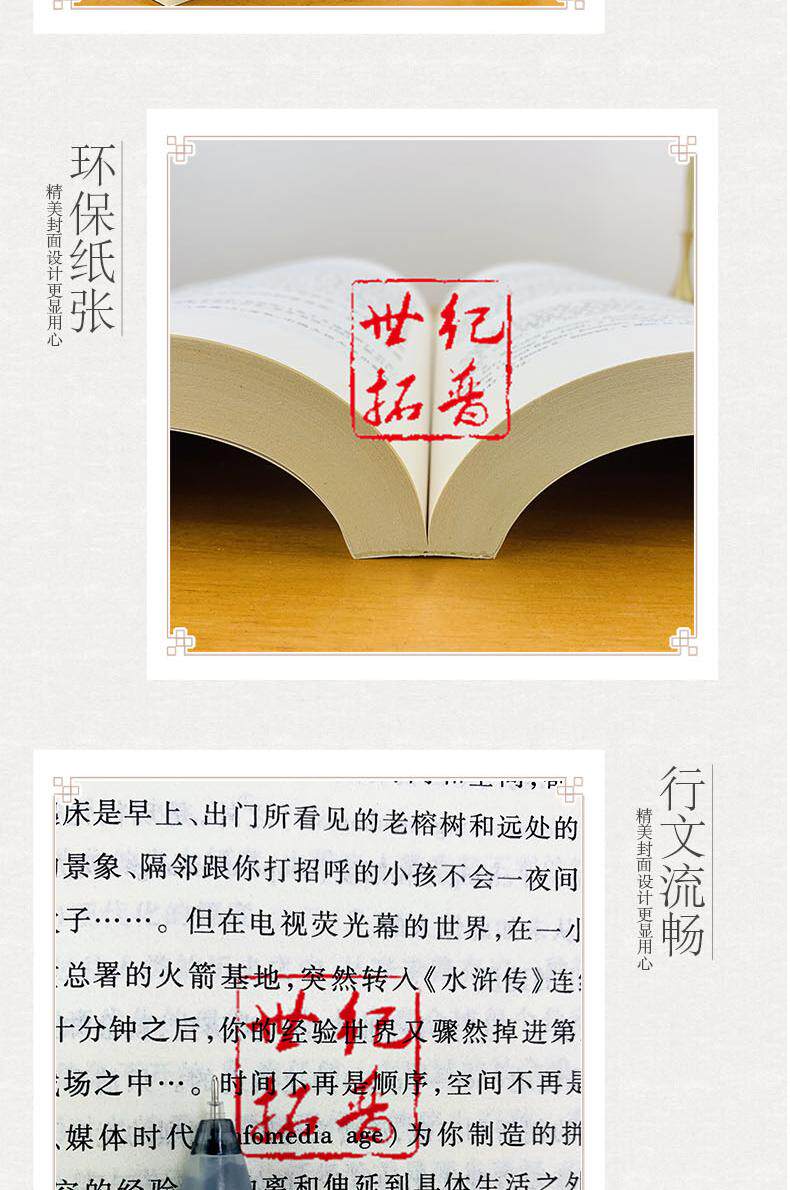 环保纸张
精美封面设计更显用心
世纪
拓普
行文流畅
精美封面设计更显用心
床是早上、出门所看见的老榕树和远处的
景象、隔邻跟你打招呼的小孩不会一夜间
子……。但在电视荧光幕的世界,在一小
总署的火箭基地,突然转入《水浒传》连
十分钟之后,你的经验世界又骤然掉进第
场之中…。时间不再是顺序,空间不再是
媒体时代 fomedia age)为你制造的拼
世纪
拓普
的经验 离和伸延到具体生活之外